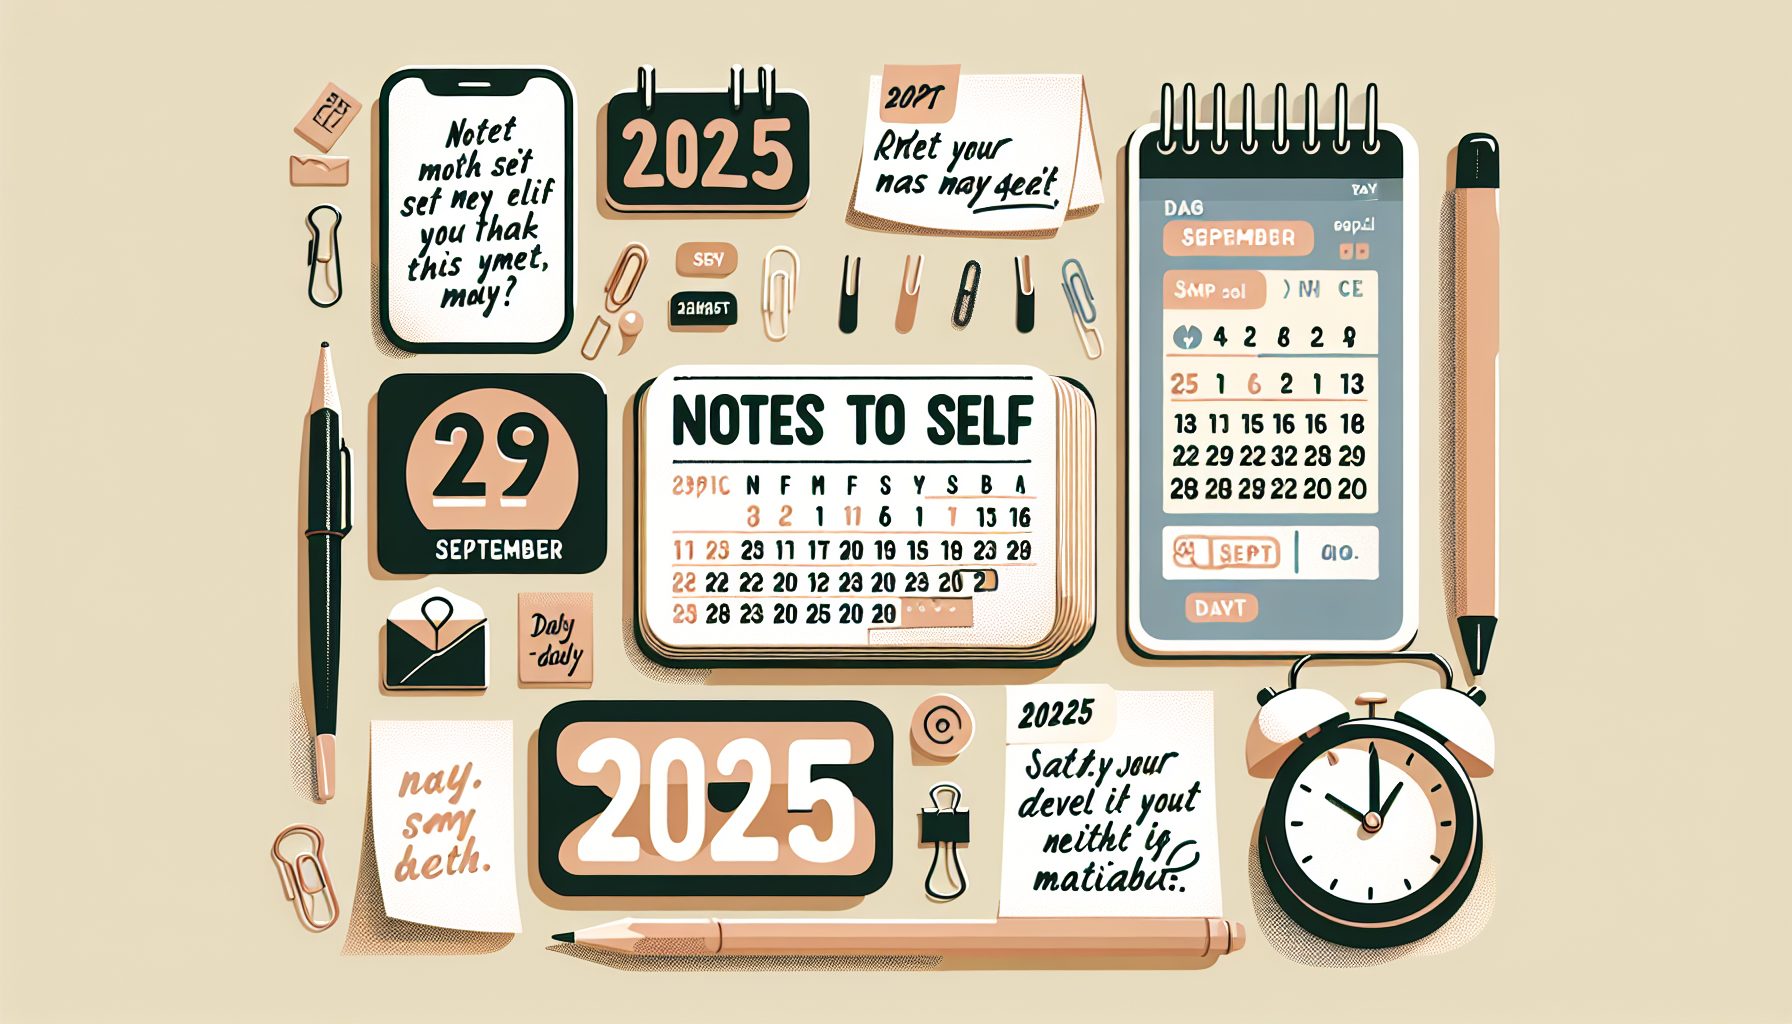 Notet
moth set
set ney elif
you thak
this ymet,
may?
2025
your
nas may
29
SEPTEMBER
NOTES TO SELF
N F M F S Y S B A
3 2 1 11 6 1 1 15 16
11 23 23 11 17 20 19 15 19 23 29
22 22 22 20 12 23 20 23 20 2
25 28 23 20 25 20 20
PAY
DAG
SEPEMBER
SMP
CE
4 2 8 2 9
25 1 6 2 1 13
13 11 15 16 16 18
22 29 22 32 28 29
28 28 29 22 20 20
SEPT
DAYT
Daly
-daly
nay.
smy
heth.
2025
20225
your
devel it yout
neitht